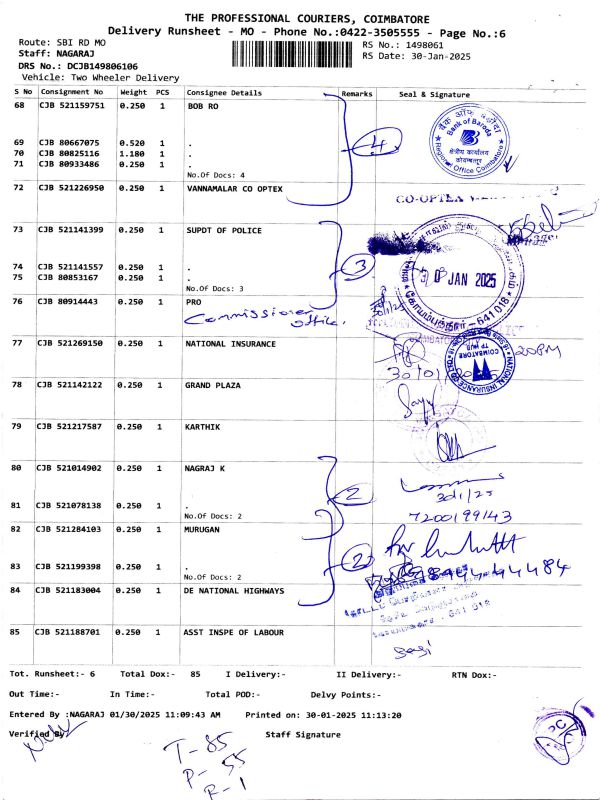 THE PROFESSIONAL COURIERS, COIMBATORE
Delivery Runsheet - MO - Phone No.:0422-3505555 - Page No.:6
Route: SBI RD MO
RS No.: 1498061
Staff: NAGARAJ
RS Date: 30-Jan-2025
DRS No.: DCJB149806106
Vehicle: Two Wheeler Delivery
S No Consignment No Weight PCS Consignee Details Remarks Seal & Signature
68 CJB 521159751 0.250 1 BOB RO
बैंक ऑफ़ बड़ौदा
Bank of Baroda
क्षेत्रीय कार्यालय
कोयम्बत्तूर
Regional Office Coimbatore
69 CJB 80667075 0.520 1 .
4
70 CJB 80825116 1.180 1 .
71 CJB 80933486 0.250 1 .
No.Of Docs: 4
72 CJB 521226950 0.250 1 VANNAMALAR CO OPTEX
CO-OPTEX
73 CJB 521141399 0.250 1 SUPDT OF POLICE
74 CJB 521141557 0.250 1 .
3
75 CJB 80853167 0.250 1 .
JAN 2025
No.Of Docs: 3
76 CJB 80914443 0.250 1 PRO
641 018
Commissioner office.
77 CJB 521269150 0.250 1 NATIONAL INSURANCE
COIMBATORE
TP HUB
78 CJB 521142122 0.250 1 GRAND PLAZA
79 CJB 521217587 0.250 1 KARTHIK
80 CJB 521014902 0.250 1 NAGRAJ K
2
30/1/25
81 CJB 521078138 0.250 1 .
No.Of Docs: 2
7200199143
82 CJB 521284103 0.250 1 MURUGAN
2
83 CJB 521199398 0.250 1 .
No.Of Docs: 2
84 CJB 521183004 0.250 1 DE NATIONAL HIGHWAYS
641 018
85 CJB 521188701 0.250 1 ASST INSPE OF LABOUR
Tot. Runsheet:- 6 Total Dox:- 85 I Delivery:- II Delivery:- RTN Dox:-
Out Time:- In Time:- Total POD:- Delvy Points:-
Entered By :NAGARAJ 01/30/2025 11:09:43 AM Printed on: 30-01-2025 11:13:20
Verified By Staff Signature
T-85
P-55
R-1